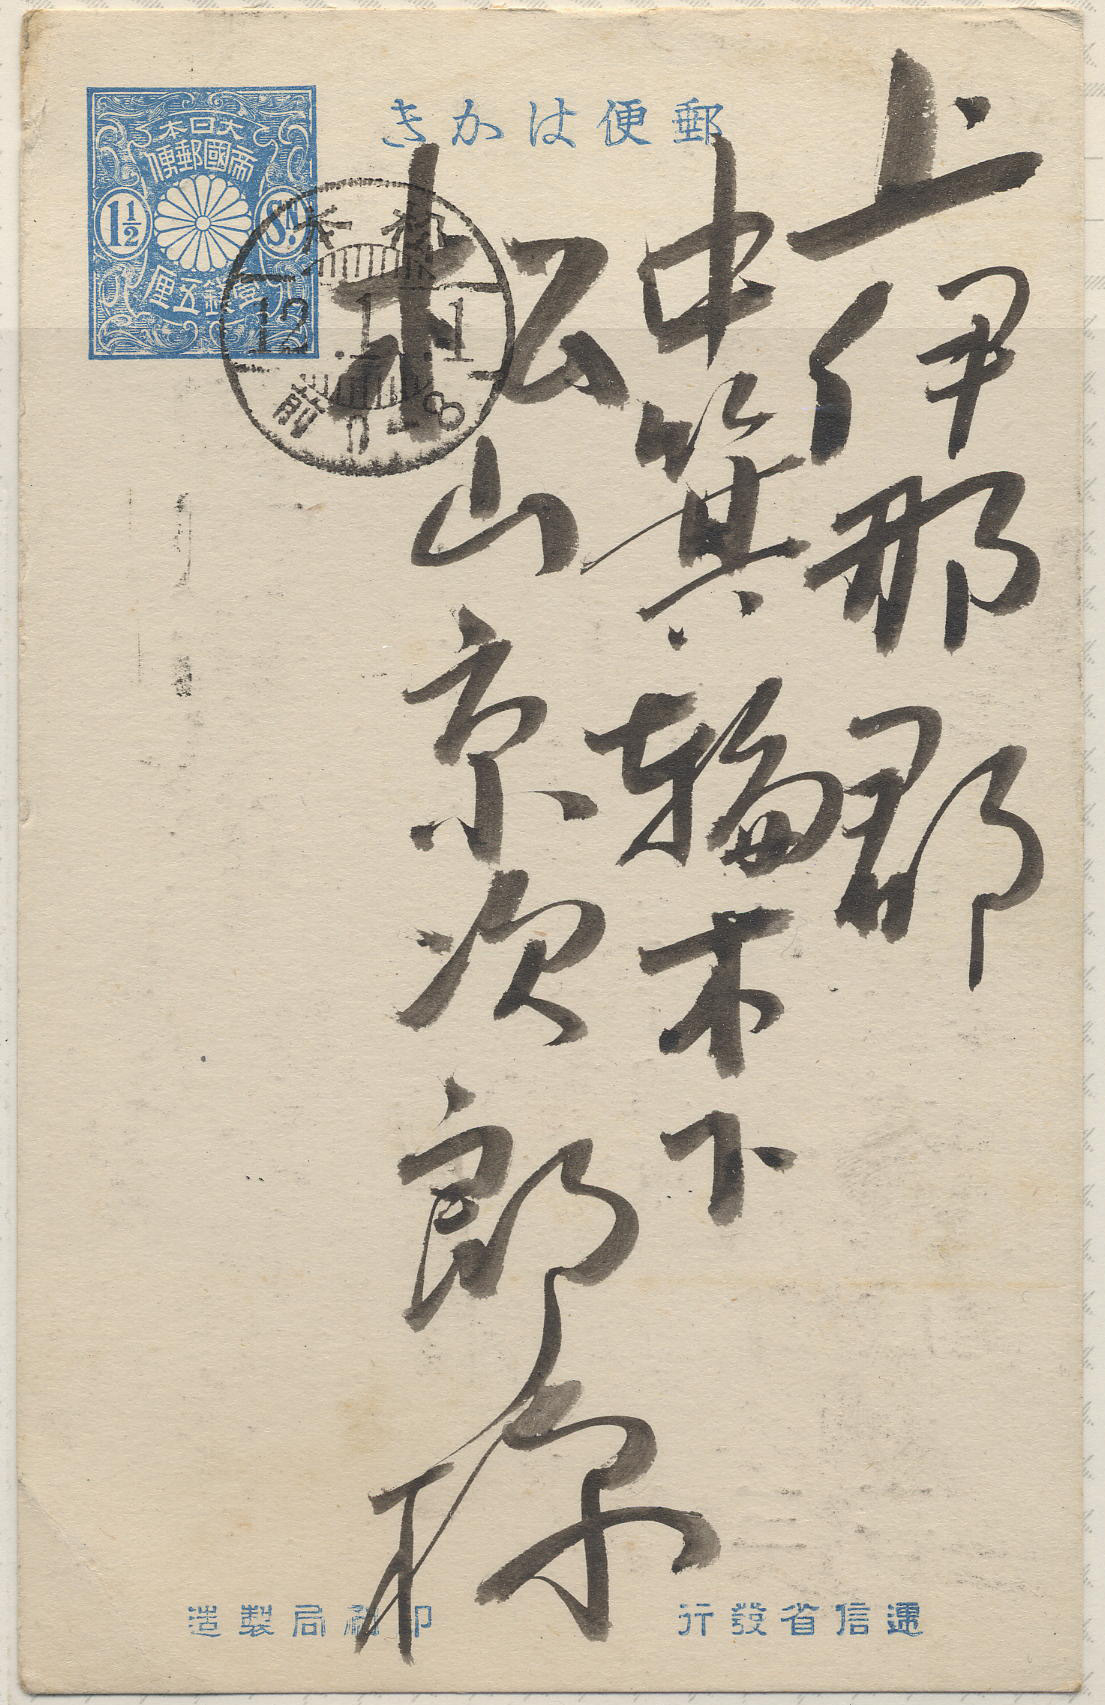 郵便はかき
大日本
帝國郵便
1½
Sn.
壹錢五厘
松本
12.1.1
前0-8
上伊那郡
中箕輪木下
松山京次郎様
逓信省發行
印刷局製造